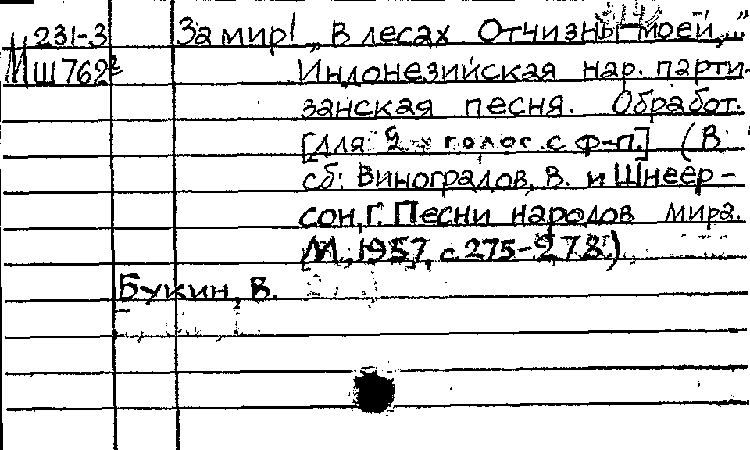 231-3 За мир! „В лесах Отчизны моей,..."
МШ762² Индонезийская нар. парти-
занская песня. Обработ.
[для 2-х голос. с ф-п.] (В
сб: Виноградов, В. и Шнеер-
сон, Г. Песни народов мира.
М., 1957, с. 275-278.)
Букин, В.